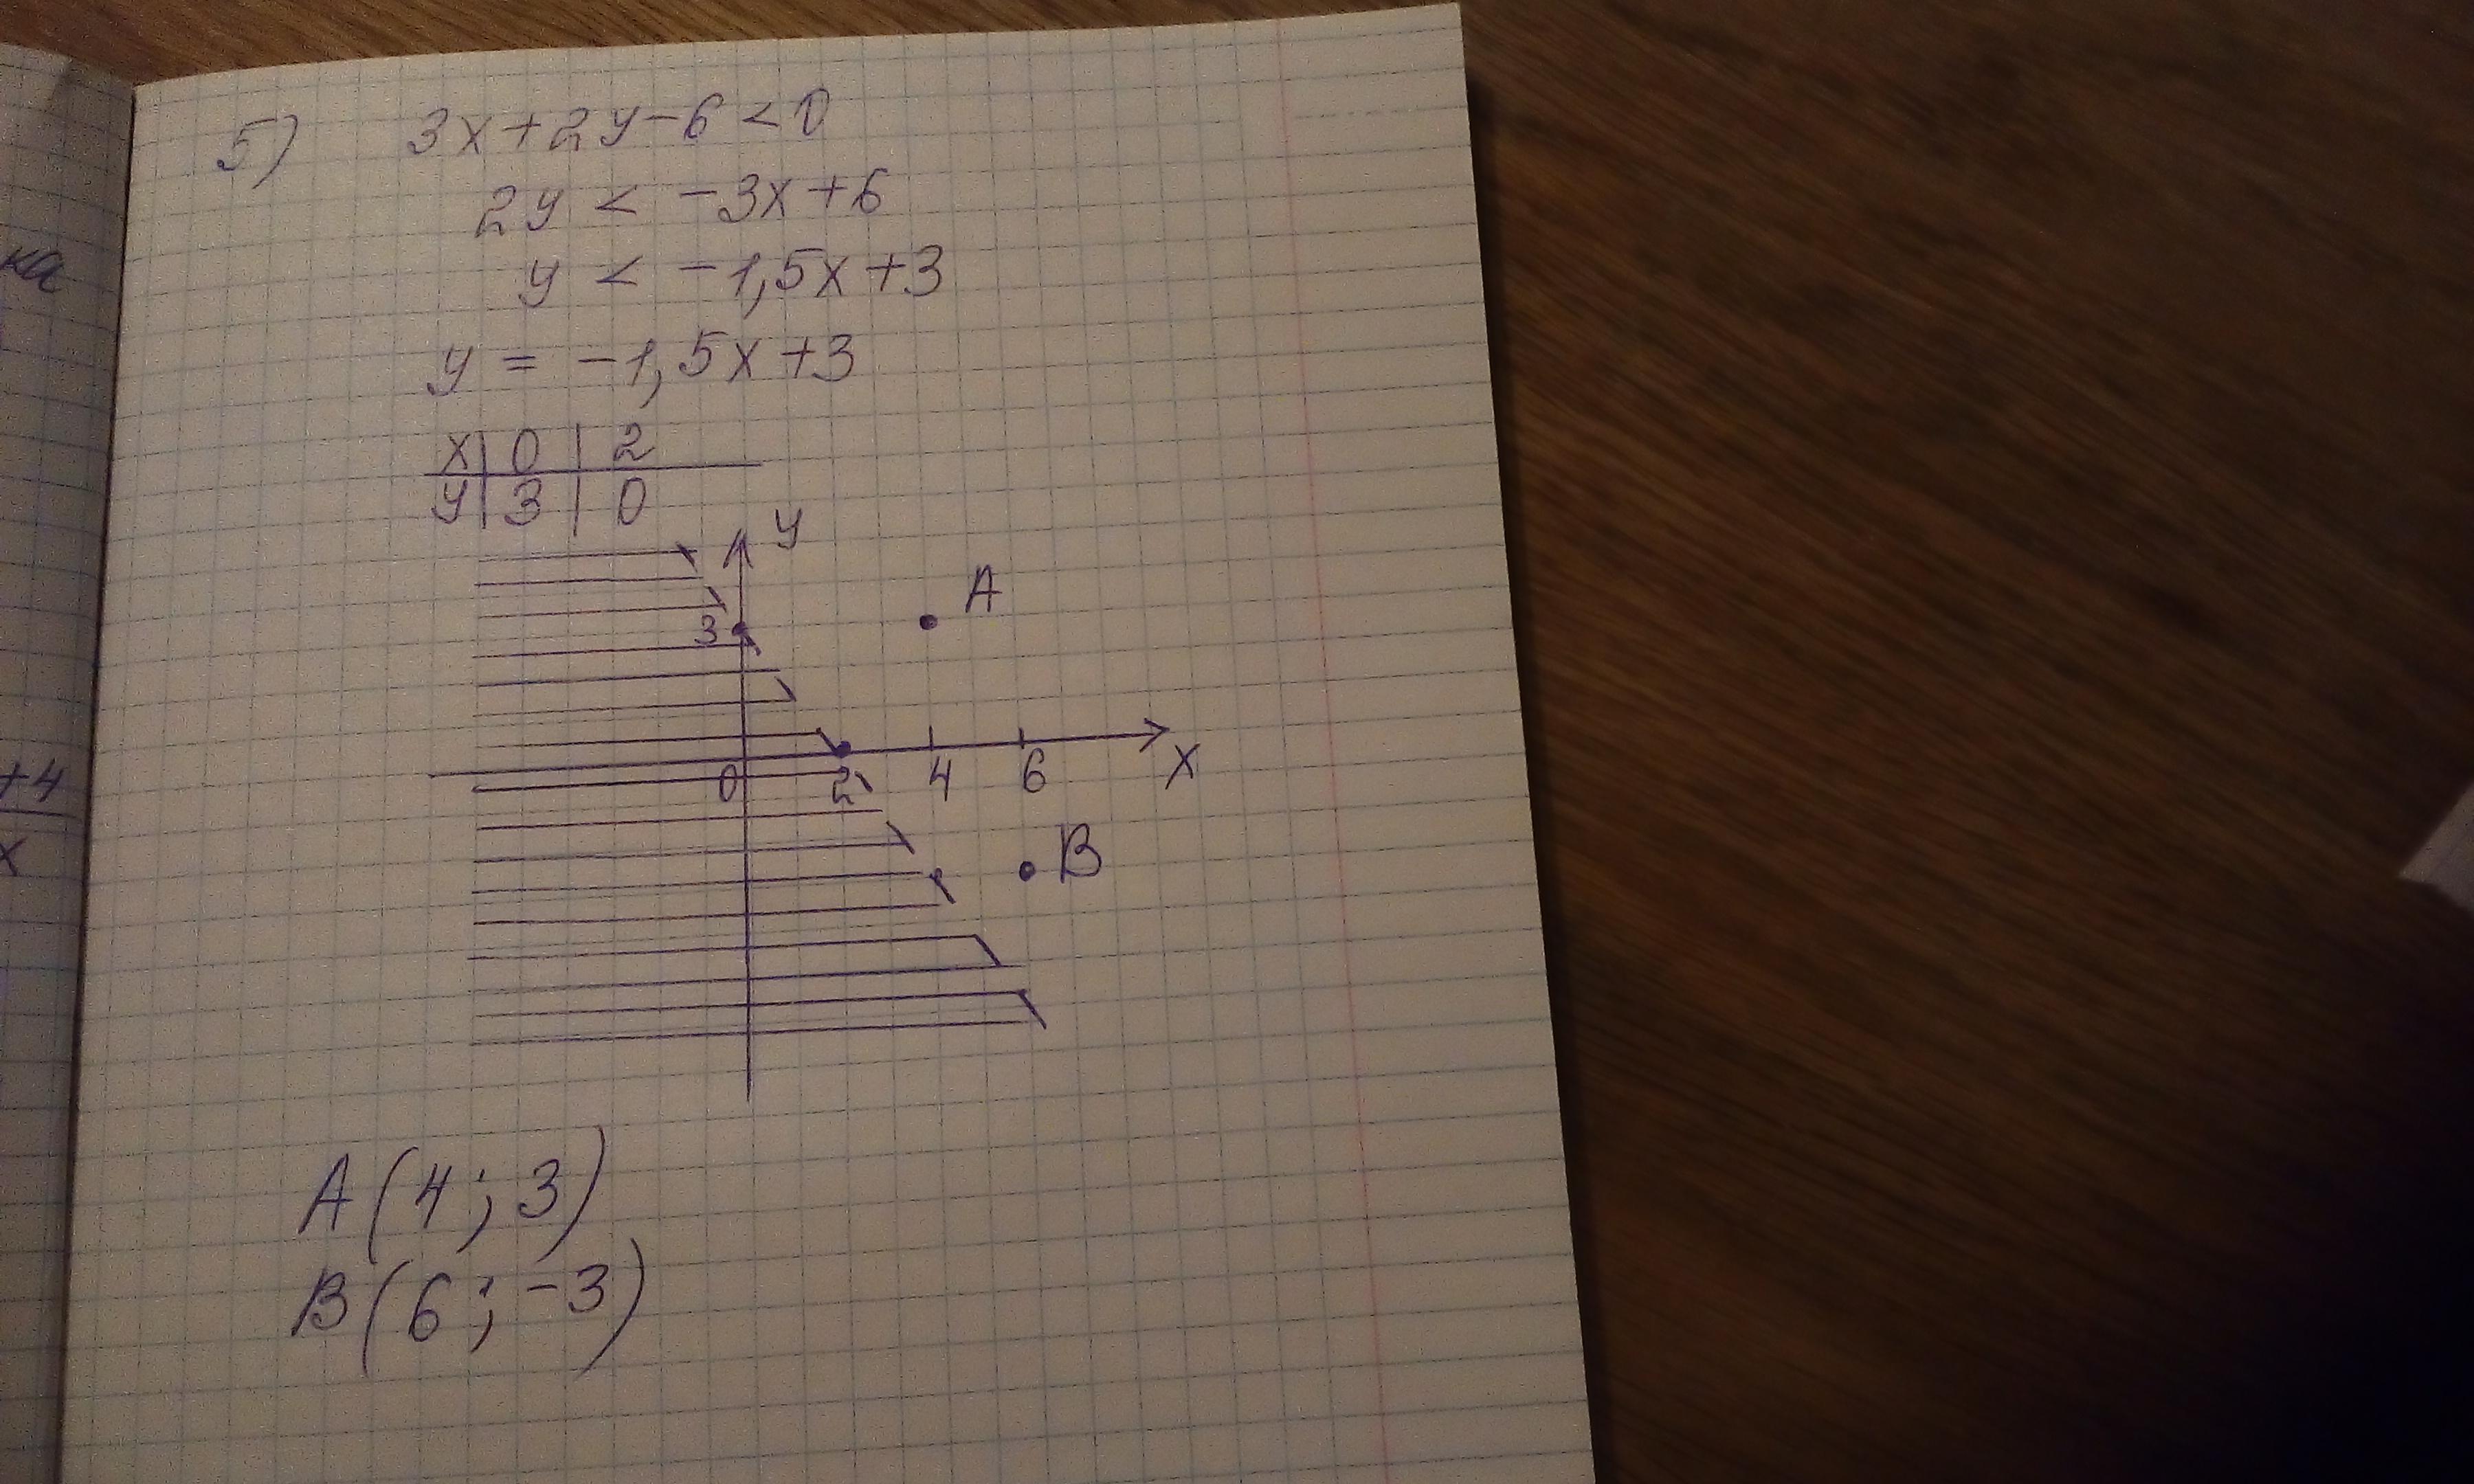 5) 3x+2y-6<0
2y < -3x+6
y < -1,5x+3
y = -1,5x+3
x | 0 | 2
y | 3 | 0
y
A
3
0 2 4 6 x
B
A(4; 3)
B(6; -3)
ка
+4
x